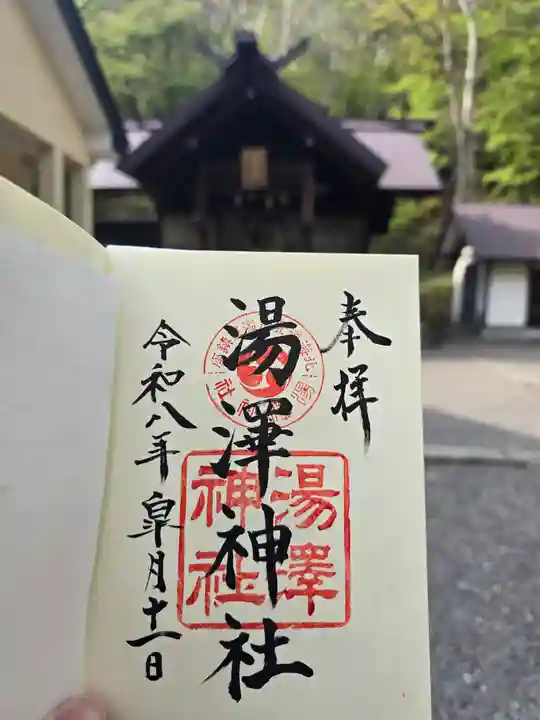 奉拝
湯澤神社
湯澤
神社
令和八年皐月十一日